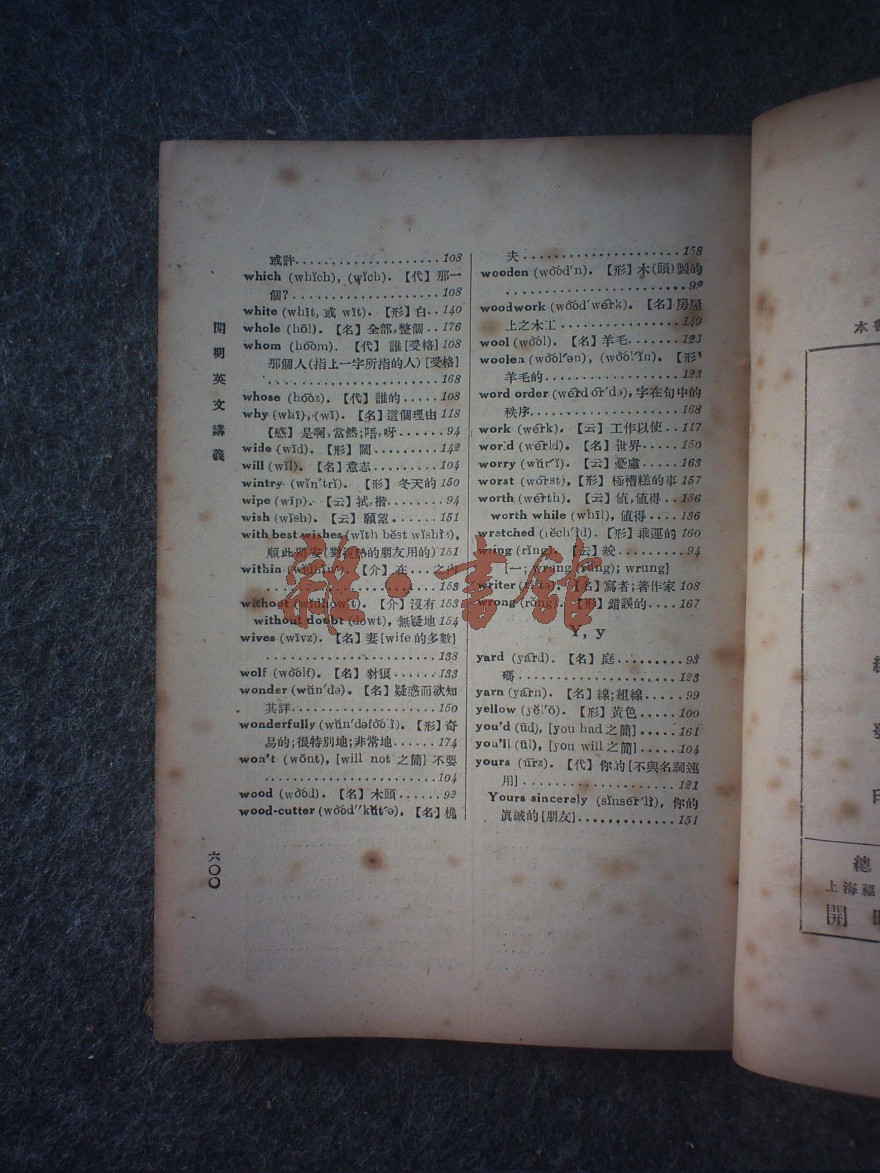 或許 103
which (whĭch), (wĭch). 【代】那一
個? 108
white (whīt, 或 wīt). 【形】白 140
whole (hōl). 【名】全部,整個 176
whom (ho͞om). 【代】誰[受格] 108
那個人(指上一字所指的人)[受格]
168
whose (ho͞oz). 【代】誰的 108
why (whī), (wī). 【名】這個理由 118
【感】是啊,當然;唔,呀 94
wide (wīd). 【形】闊 142
will (wĭl). 【名】意志 104
wintry (wĭn'trĭ). 【形】冬天的 150
wipe (wīp). 【云】拭,揩 94
wish (wĭsh). 【云】願望 151
with best wishes (wĭth bĕst wĭshĭz),
順此 的朋友用的) 151
within 【介】在…之內
153
without 【介】沒有 153
without doubt (dowt), 無疑地 154
wives (wīvz). 【名】妻[wife 的多數]
138
wolf (wo͝olf). 【名】豺狼 133
wonder (wŭn'də). 【名】疑惑而欲知
其詳 150
wonderfully 【形】奇
易的;很特別地;非常地 174
won't (wōnt), [will not 之簡] 不要
104
wood (wo͝od). 【名】木頭 92
wood-cutter (wo͝od''kŭt'ə). 【名】樵
夫 158
wooden (wo͝od'n). 【形】木(頭)製的
92
woodwork (wo͝od'wẽrk). 【名】房屋
上之木工 149
wool (wo͝ol). 【名】羊毛 123
woolen (wo͝ol'ən), (wo͝ol'ĭn). 【形】
羊毛的 123
word order (wẽrd ôr'də), 字在句中的
秩序 168
work (wẽrk). 【云】工作以使 117
world (wẽrld). 【名】世界 150
worry (wŭr'ĭ). 【云】憂慮 163
worst (wôrst), 【形】極糟糕的事 157
worth (wẽrth). 【云】值,值得 136
worth while (whīl), 值得 136
wretched (rĕch'ĭd). 【形】乖運的 160
wring (rĭng). 【云】絞 94
[—; wrung (rŭng); wrung]
writer 【名】寫者;著作家 108
wrong (rŏng). 【形】錯誤的 167
Y, y
yard (yärd). 【名】庭 93
碼 123
yarn (yärn). 【名】線;組線 99
yellow (yĕl'ō). 【形】黃色 100
you'd (ūd), [you had 之簡] 161
you'll (ūl), [you will 之簡] 104
yours (ūrz). 【代】你的[不與名詞連
用] 121
Yours sincerely (sĭnsēr'lĭ), 你的
真誠的[朋友] 151
開明英文講義
六〇〇
雜·書館
本
印
總
上海福
開